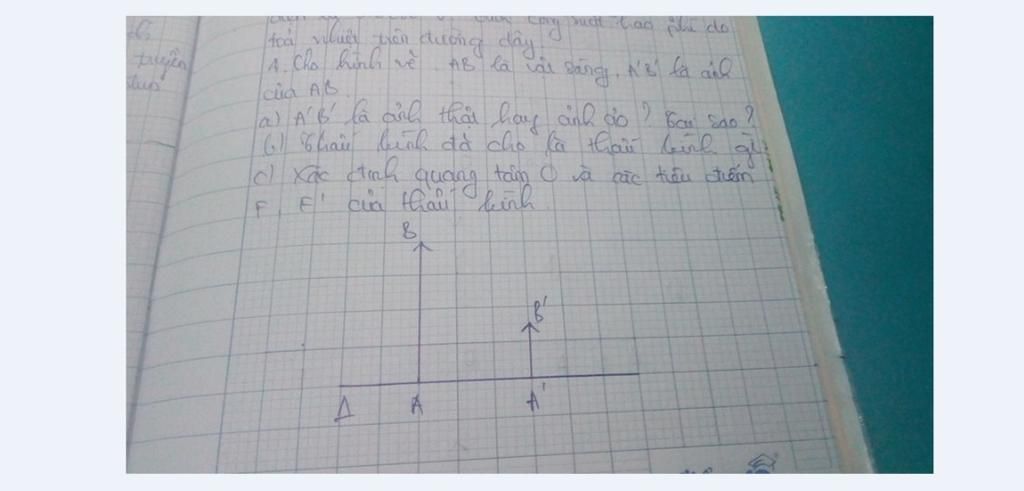 toả nhiệt trên đường dây.
4. Cho hình vẽ AB là vật sáng, A'B' là ảnh
của AB.
a) A'B' là ảnh thật hay ảnh ảo? sao?
b) Thấu kính đã cho là thấu kính gì
c) Xác định quang tâm O và các tiêu điểm
F, F' của thấu kính.
B
B'
Δ A A'
truyền